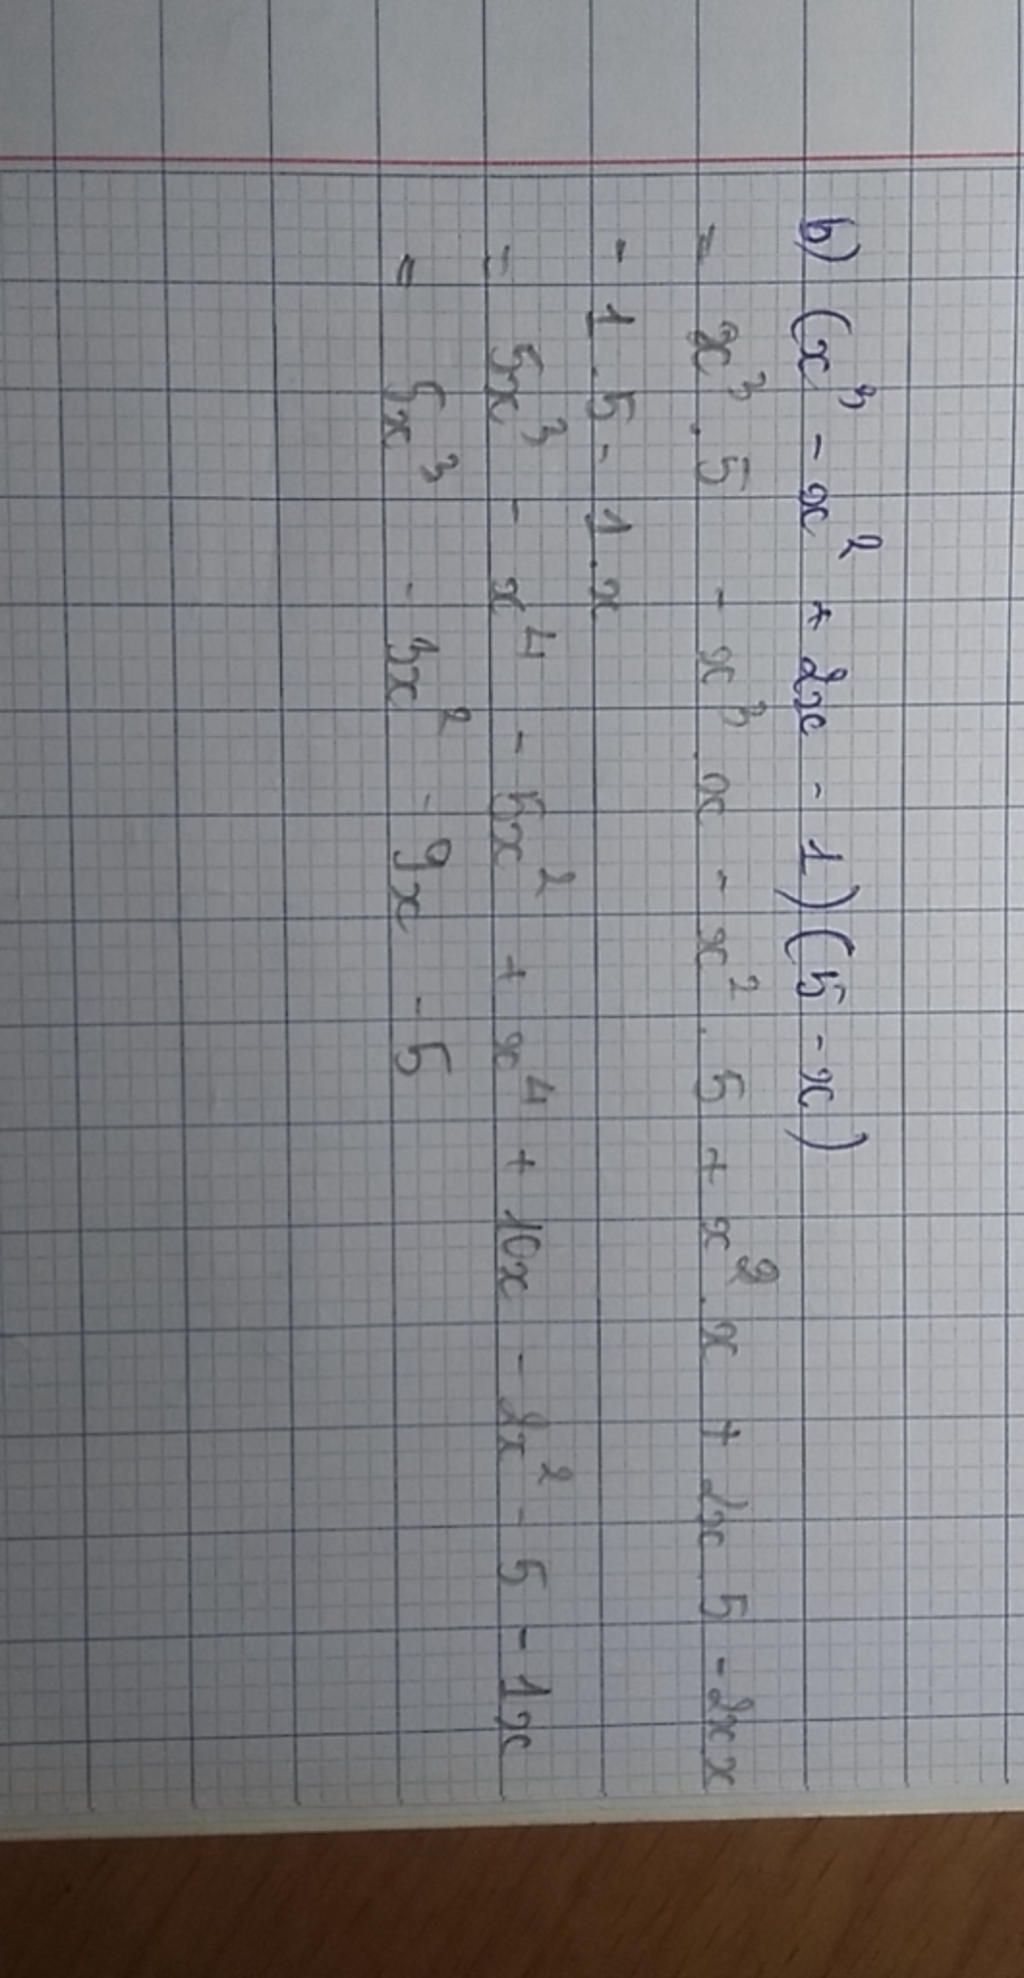 b) (x³ - x² + 2x - 1)(5 - x)
= x³ . 5 - x³ . x - x² . 5 + x² . x + 2x . 5 - 2x x
- 1 . 5 - 1 . x
= 5x³ - x⁴ - 5x² + x⁴ + 10x - 2x² - 5 - 1x
= 5x³ - 3x² - 9x - 5